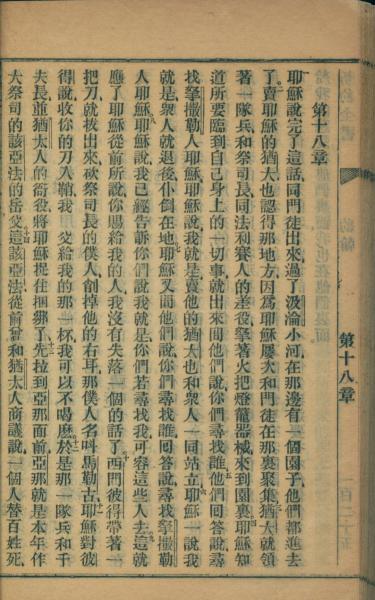 第十八章
耶穌說完了這話同門徒出來過了汲淪小河在那邊有一個園子他們都進去
了賣耶穌的猶大也認得那地方因爲耶穌屢次和門徒在那裏聚集猶大就領
著一隊兵和祭司長同法利賽人的差役拏著火把燈籠器械來到園裏耶穌知
道所要臨到自己身上的一切事就出來問他們說你們尋找誰他們回答說尋
找拏撒勒人耶穌耶穌說我就是賣他的猶大也和衆人一同站立耶穌一說我
就是衆人就退後仆倒在地耶穌又問他們說你們尋找誰回答說尋找拏撒勒
人耶穌耶穌說我已經告訴你們說我就是你們若尋找我可容這些人去這就
應了耶穌從前所說你賜給我的人我沒有失落一個的話了西門彼得帶著一
把刀就拔出來砍祭司長的僕人削掉他的右耳那僕人名叫馬勒古耶穌對彼
得說收你的刀入鞘我父給我的那一杯我可以不喝麽於是那一隊兵和千
夫長並猶太人的衙役將耶穌捉住捆綁了先拉到亞那面前亞那就是本年作
大祭司的該亞法的岳父這該亞法從前曾和猶太人商議說一個人替百姓死
第十八章